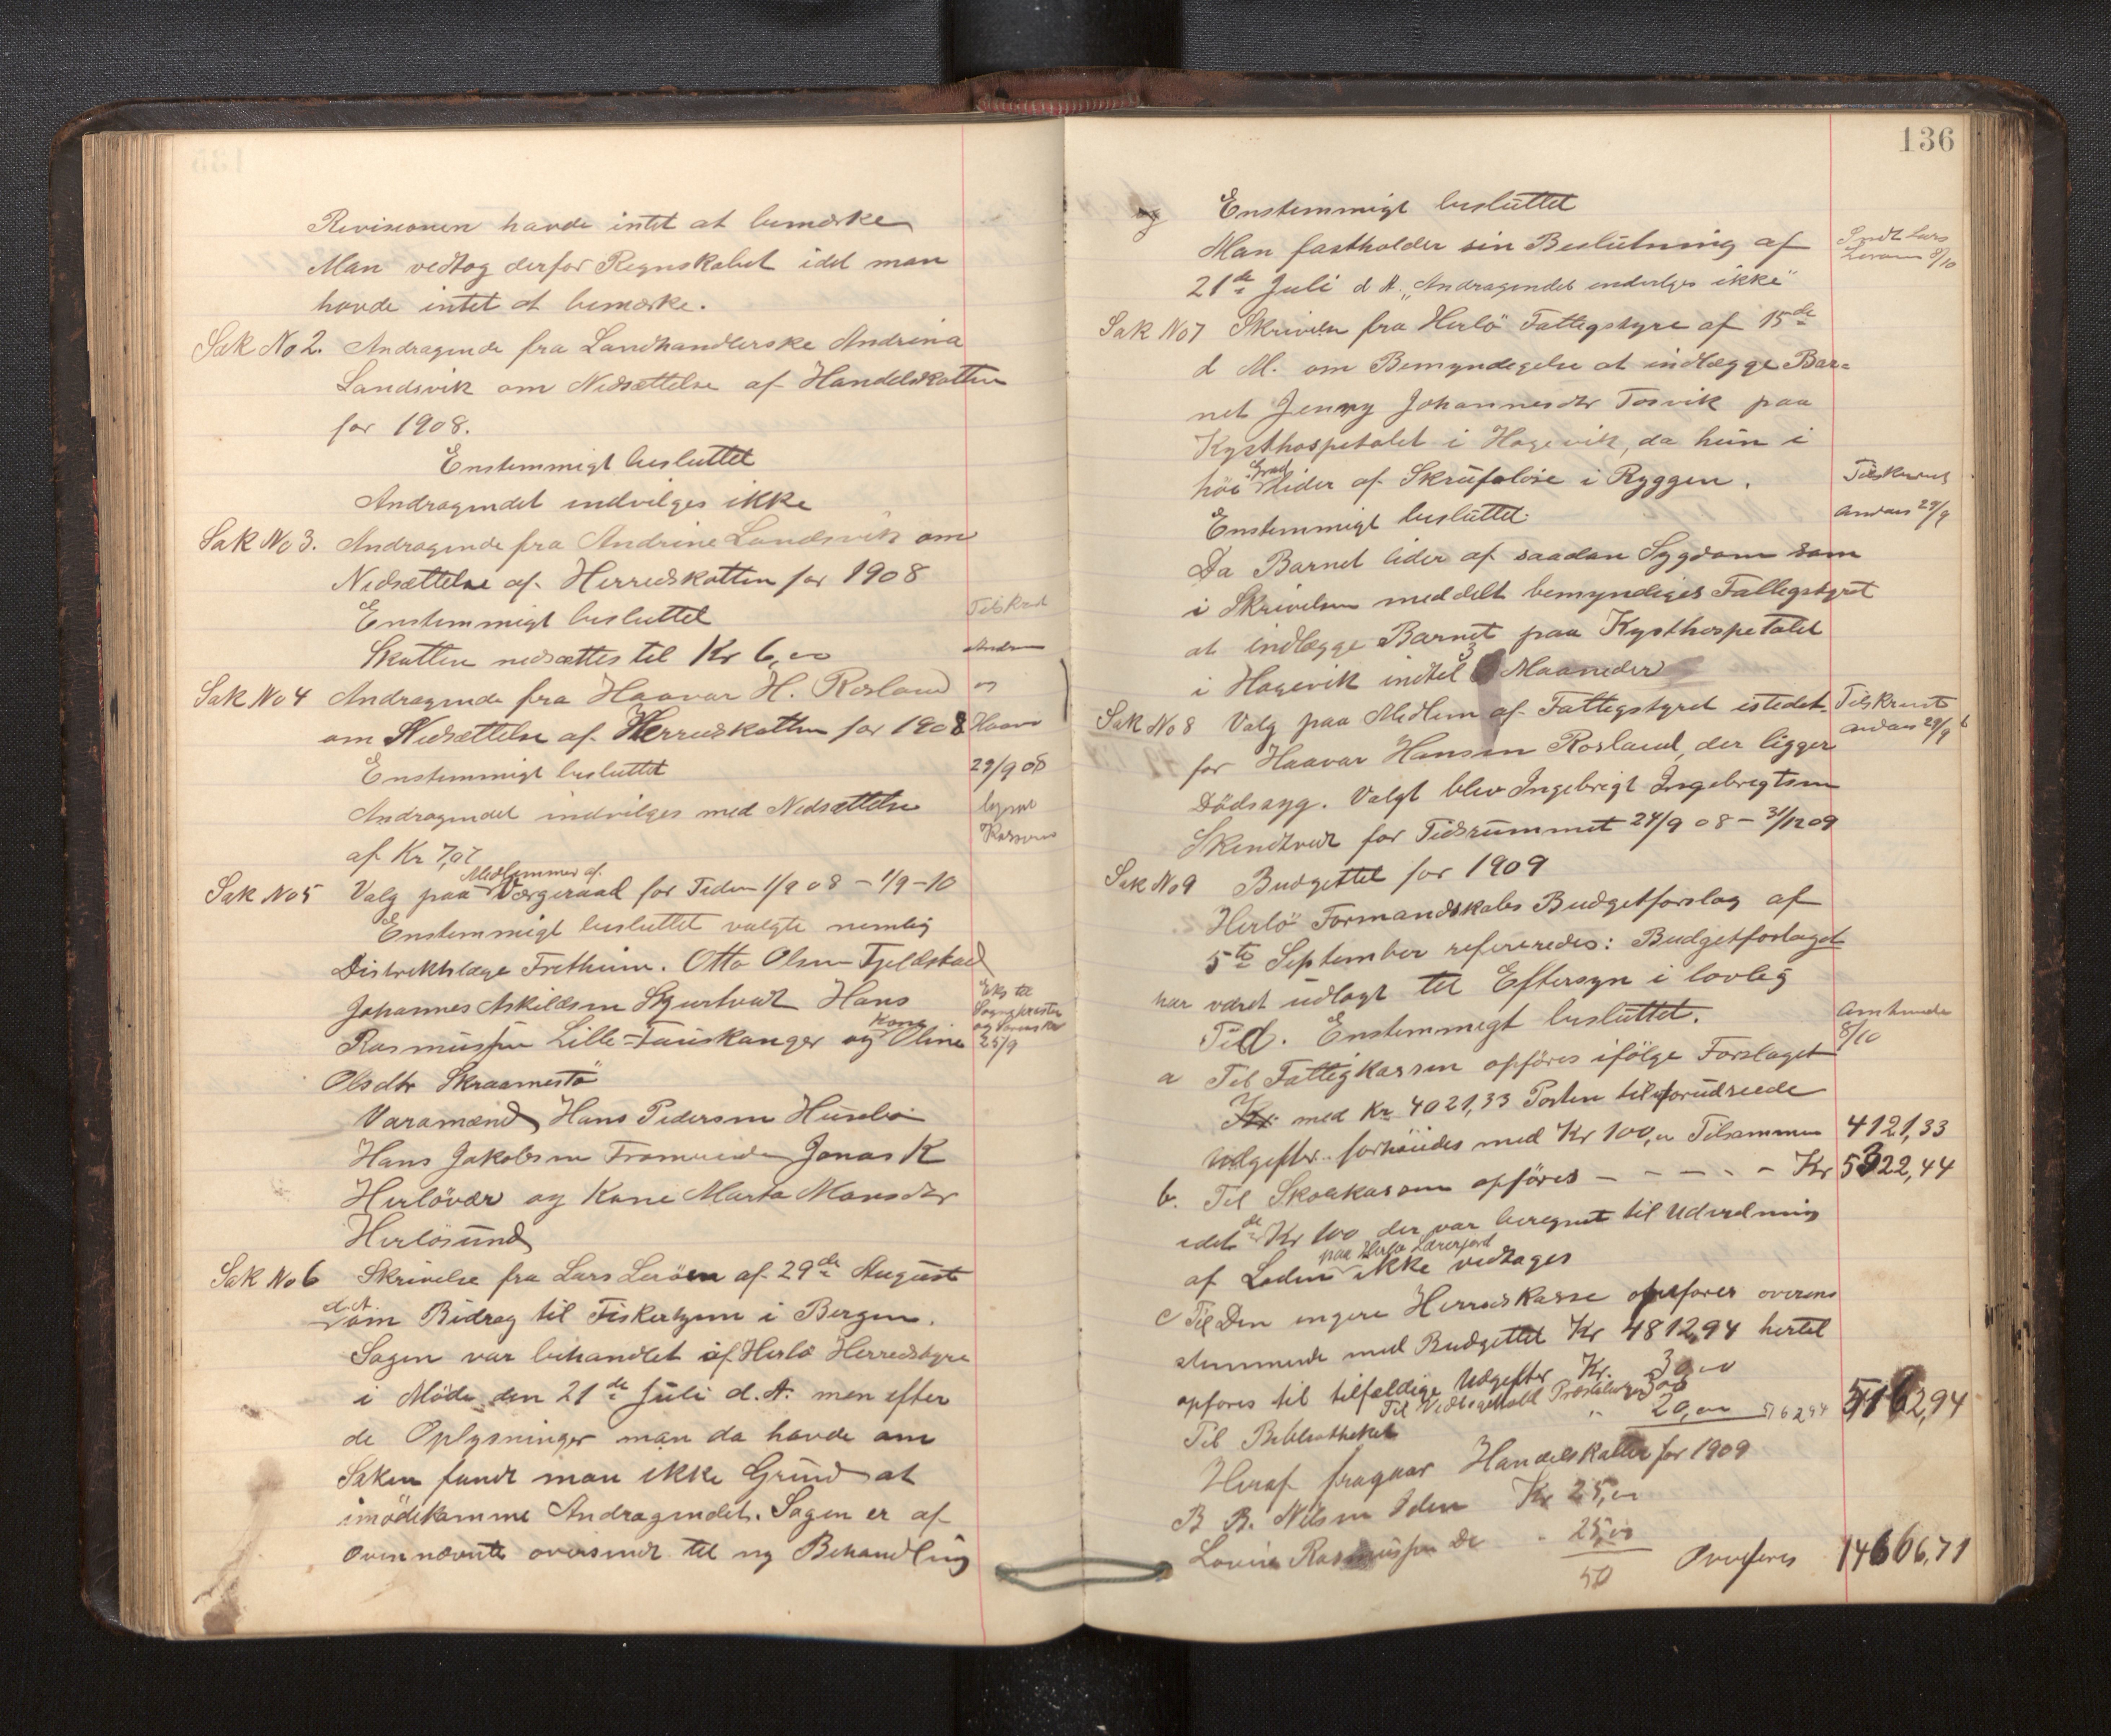 Revisionen havde intet at bemærke
Man vedtog derfor Regnskabet idet man
havde intet at bemærke.
Sak No 2. Andragende fra Landhandlerske Andrina
Landsvik om Nedsættelse af Handelskatten
for 1908.
Enstemmigt besluttet
Andragendet indvilges ikke
Sak No 3. Andragende fra Andrine Landsvik om
Nedsættelse af Herredskatten for 1908
Enstemmigt besluttet
Skatten nedsættes til Kr 6,00
Sak No 4 Andragende fra Haavar H. Rosland
om Nedsættelse af Herredskatten for 1908
Enstemmigt besluttet
Andragendet indvilges med Nedsættelse
af Kr 7,07
Medlemmer af
Sak No 5 Valg paa Værgeraad for Tiden 1/9 08 – 1/9 – 10
Enstemmigt besluttet valgte nemlig
Distriktslæge Fretheim. Otto Olsen Fjeldstad
Johannes Askildsen Skurtvedt Hans
Rasmussen Lille-Tauskanger og Kone Oline
Olsdtr Skraamestö
Varamænd Hans Pedersen Husebö
Hans Jakobsen Fromreide Jonas K
Herlövær og Kone Marta Monsdtr
Herlösund
Sak No 6 Skrivelse fra Lars Leröen af 29de August
d. A. om Bidrag til Fiskerhjem i Bergen.
Sagen var behandlet af Herlö Herredstyre
i Möde den 21de Juli d. A. men efter
de Oplysninger man da havde om
Saken fandt man ikke Grund at
imödekomme Andragendet. Sagen er af
Ovennævnte oversendt til ny Behandling
Tilskrevet
Andrine
og
Haavar
29/9 08
Kasseren
Eks til
Sogneprester
og Lensm
25/9
136
og Enstemmigt besluttet
Man fastholder sin Beslutning af
21de Juli d A. „Andragendet indvilges ikke"
Sak No 7 Skrivelse fra Herlö Fattigstyre af 15de
d M. om Bemyndigelse at indlægge Bar=
net Jenny Johannesdtr Tosvik paa
Kysthospitalet i Hagevik, da hun i
höi Grad lider af Skrufolose i Ryggen.
Enstemmigt besluttet
Da Barnet lider af saadan Sygdom som
i Skrivelsen meddelt bemyndiges Fattigstyret
at indlægge Barnet paa Kysthospitalet
i Hagevik indtil 3 Maaneder
Sak No 8 Valg paa Medlem af Fattigstyret istedet
for Haavar Hansen Rosland, der ligger
Dödssyg. Valgt blev Ingebrigt Ingebrigtsen
Skendtvedt for Tidsrummet 24/9 08 – 31/12 09
Sak No 9 Budgettet for 1909
Herlö Formandskabs Budgetforslag af
5te September refereredes: Budgetforslaget
har været udlagt til Eftersyn i lovlig
Tid. Enstemmigt besluttet.
a Til Fattigkassen opföres ifölge Forslaget
Kr med Kr 4021,33 Posten til uforudseede
Udgifter forhöiedes med Kr 100,00 Tilsammen 4121,33
b. Til Skolekassen opföres – – – – Kr 5322,44
idet de Kr 100 der var beregnet til Udvidning
paa Herlö Lærerjord
af Laden ikke vedtages
c Til Den engere Herredskasse opföres overens
stemmende med Budgettet Kr 4812,94 hertil
opföres til tilfældige Udgifter Kr. 30,00
Til Vedligehold Præsteboliger 300
Til Bibliotheket " 20,00 5162,94 5162,94
Heraf fragaar Handelskatter for 1909
B B. Nilsen Iden Kr 25,00
Lovise Rasmussen Do " 25,00
50
Overföres 14606,71
Sendt Lars
Leröen 8/10
Tilskrevet
Anders 29/9
Tilskrevet
Anders 29/9
Amtmanden
8/10